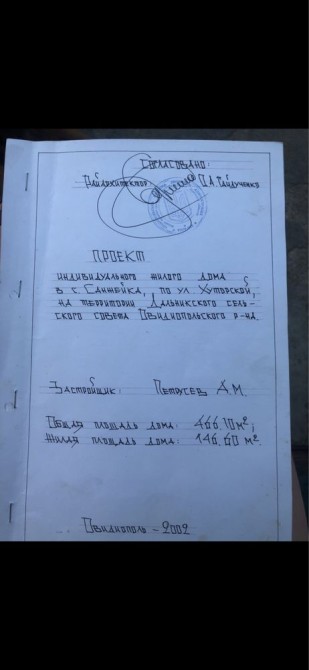 Согласовано:
Райархитектор О.А. Гайдученко
Проект
индивидуального жилого дома
в с. Санжейка, по ул. Хуторской,
на территории Дальникского сель-
ского совета Овидиопольского р-на
Застройщик: Петрусев А.М.
Общая площадь дома: 466,10 м²;
Жилая площадь дома: 146,60 м².
Овидиополь - 2002